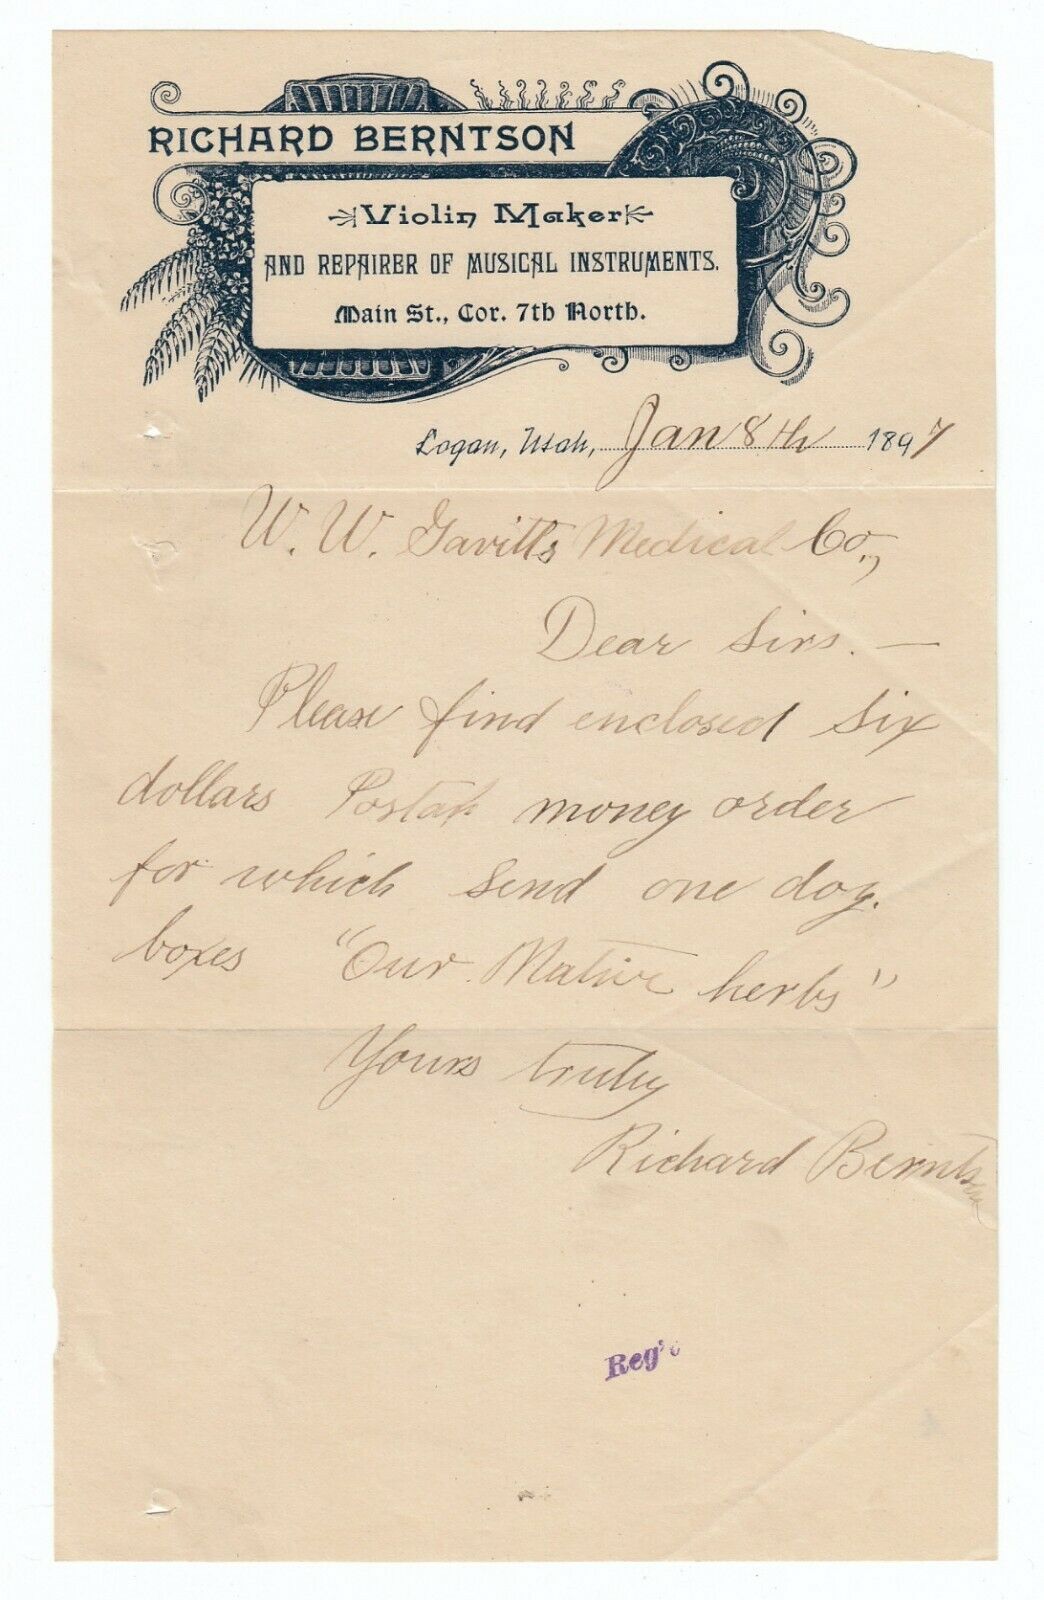 RICHARD BERNTSON
Violin Maker
AND REPAIRER OF MUSICAL INSTRUMENTS.
Main St., Cor. 7th North.
Logan, Utah, Jan 8th 1897
W. W. Gavitts Medical Co.,
Dear Sirs. —
Please find enclosed six
dollars Postal money order
for which send one doz.
boxes "Our Native herbs"
Yours truly
Richard Berntson
Reg'd